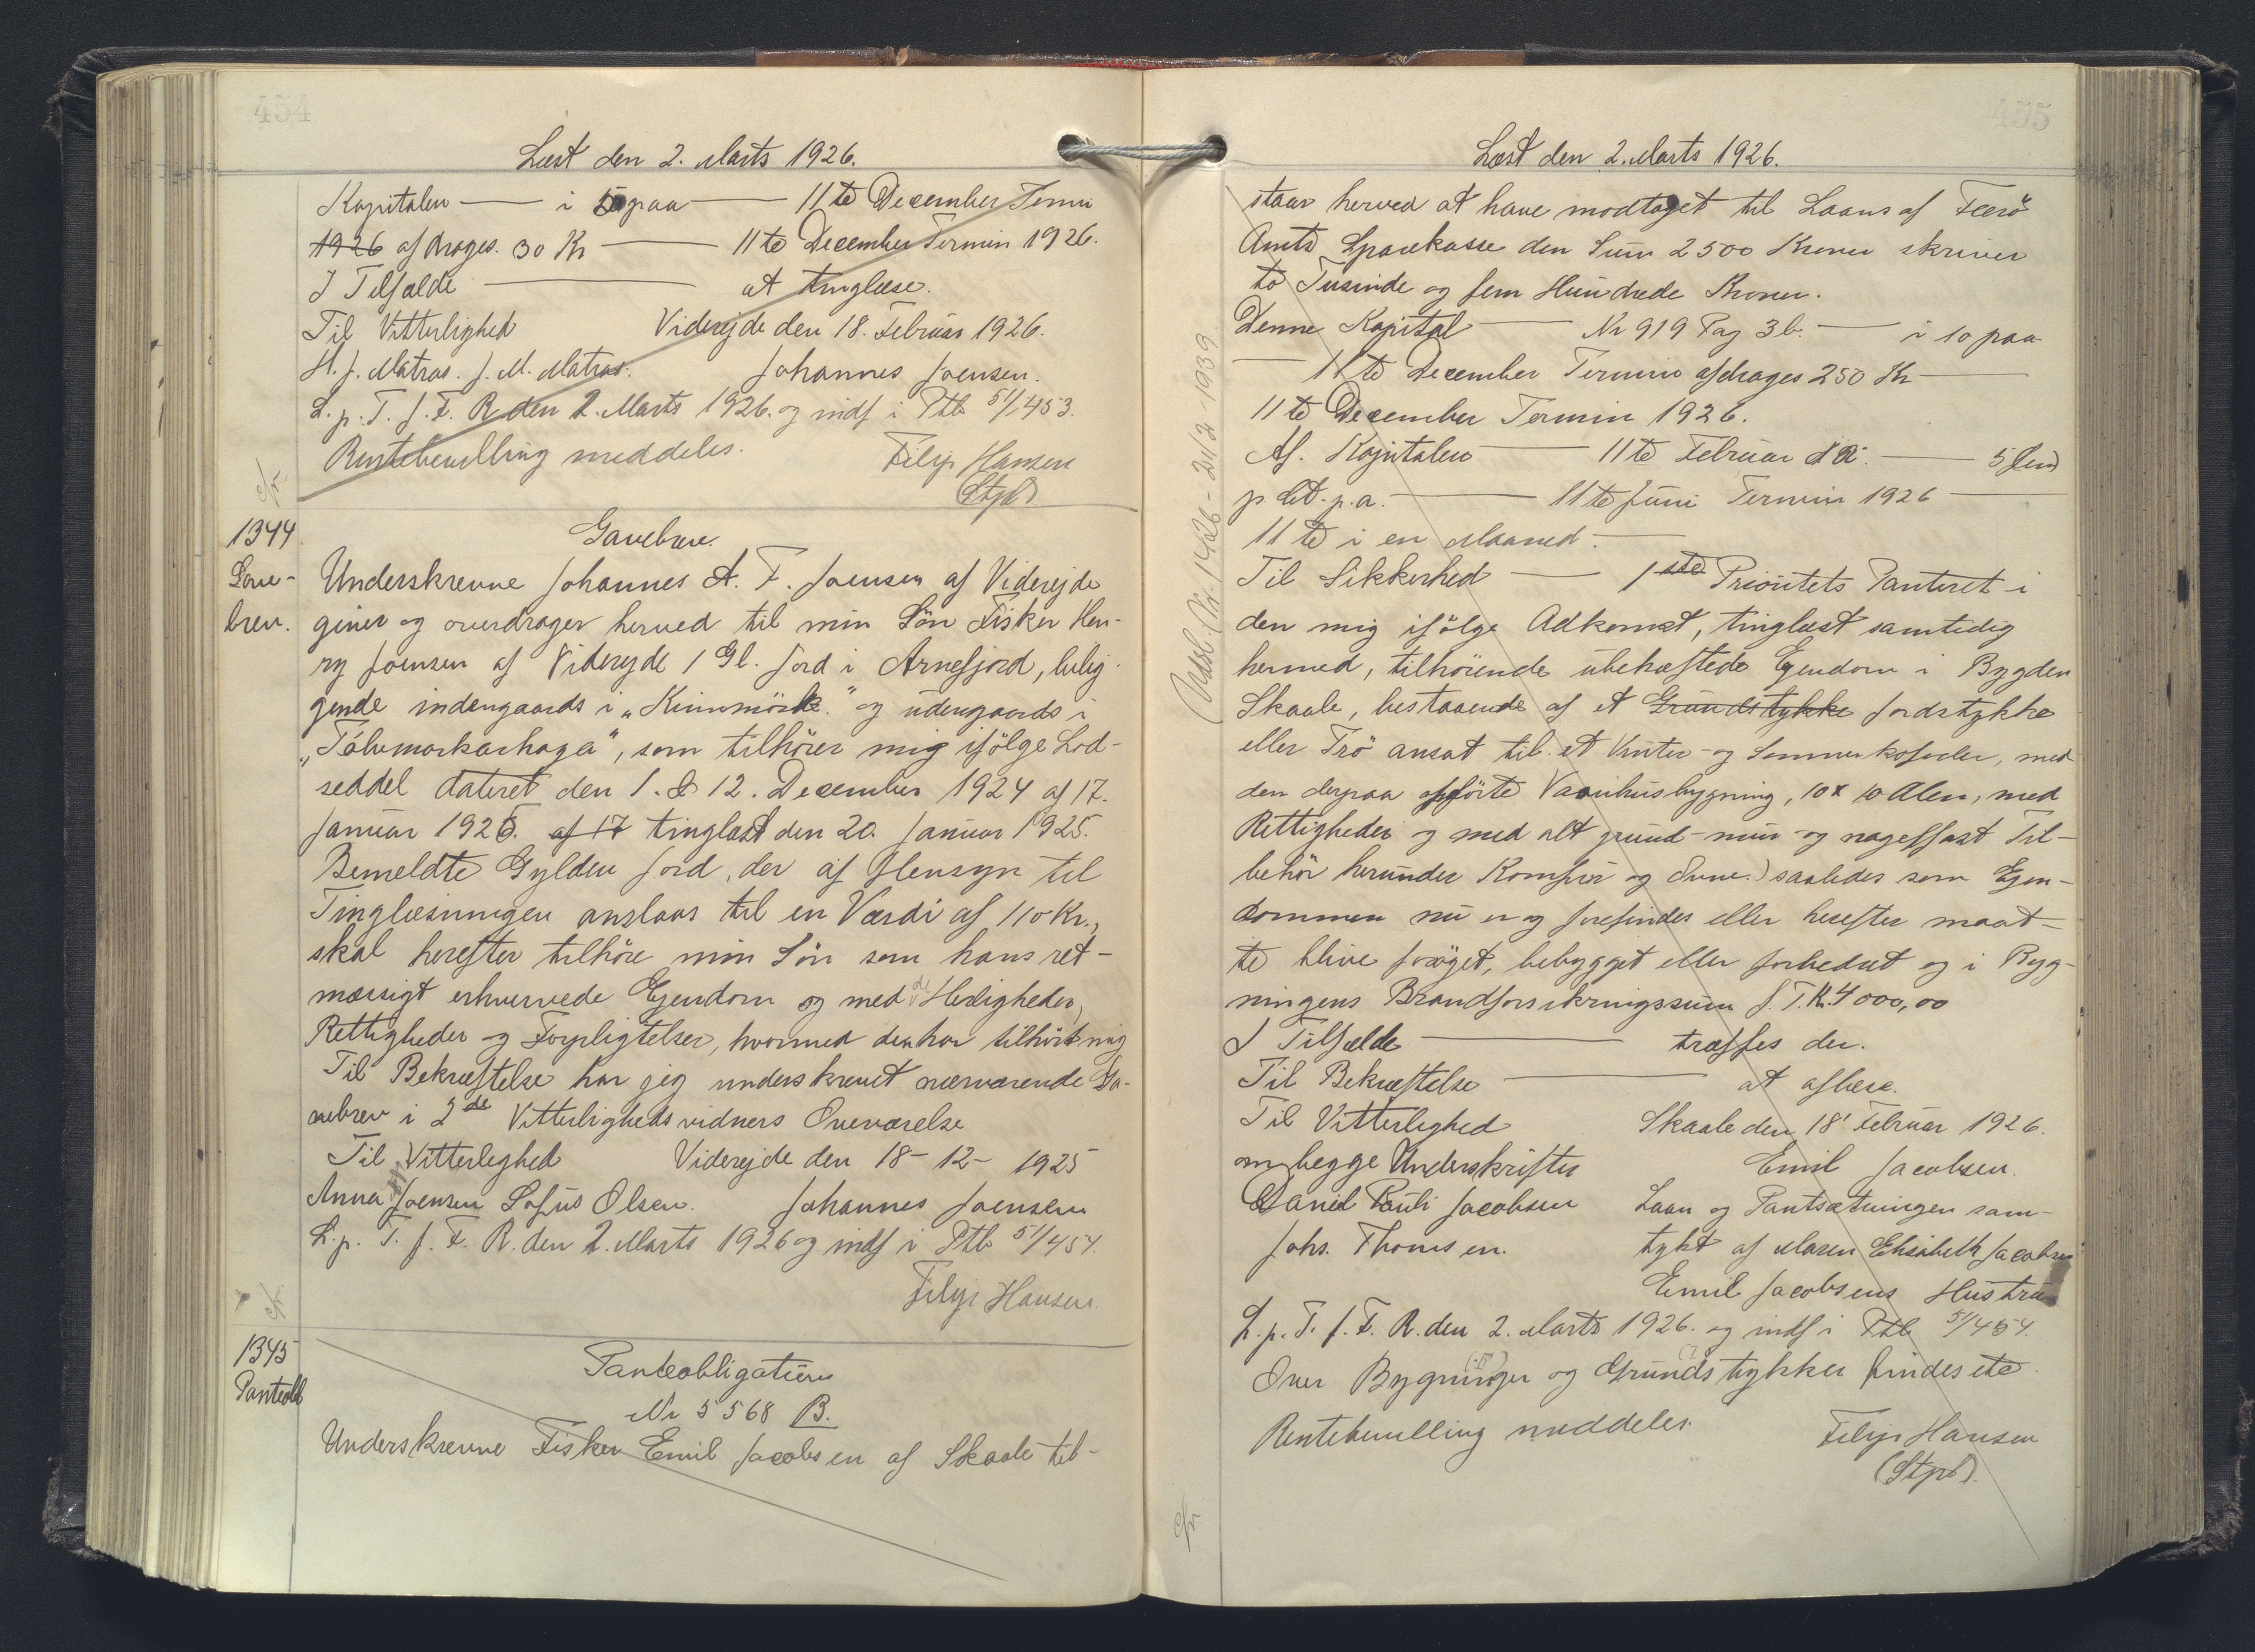 454
Læst den 2. Marts 1926.
Kapitalen — i 5 paa — 11te December Termin
1926 afdrages. 30 Kr — 11te December Termin 1926.
I Tilfælde — at tinglæse.
Til Vitterlighed Viderejde den 18. Februar 1926.
H. J. Matras. J. M. Matras. Johannes Joensen.
L. p. T. f. F. R. den 2. Marts 1926. og indf i Ptb 51/453.
Rentebevilling meddeles. Filip Hansen
(Stpl)
1344
Gavebrev.
Gavebrev.
Underskrevne Johannes A. F. Joensen af Viderejde
giver og overdrager herved til min Sön Fisker Hen-
ry Joensen af Viderejde 1 Gl. Jord i Arnefjord, belig-
gende indengaards i „Kinnmörk" og udengaards i
„Tólvmarkarhaga", som tilhörer mig ifölge Lod-
seddel dateret den 1. & 12. December 1924 af 17.
Januar 1925. af 17 tinglæst den 20. Januar 1925.
Bemeldte Gylden Jord, der af Hensyn til
Tinglæsningen anslaas til en Værdi af 110 Kr.,
skal herefter tilhöre min Sön som hans ret-
mæssigt erhvervede Ejendom og med de Herligheder,
Rettigheder og Forpligtelser, hvormed den har tilhört mig
Til Bekræftelse har jeg underskrevet nærværende Ga-
vebrev i 2de Vitterlighedsvidners Overværelse
Til Vitterlighed Viderejde den 18-12-1925
Anna Joensen Sofus Olsen. Johannes Joensen
L. p. T. f. F. R. den 2. Marts 1926 og indf i Ptb 51/454.
Filip Hansen.
1345
Panteobl
Panteobligation
Nr 5568 B.
Underskrevne Fisker Emil Jacobsen af Skaale til-
455
Læst den 2. Marts 1926.
staar herved at have modtaget til Laans af Færö
Amts Sparekasse den Sum 2500 Kroner skriver
to Tusinde og fem Hundrede Kroner.
Denne Kapital — Nr 919 Pag 3b. — i 10 paa
— 11te December Termin afdrages 250 Kr —
11te December Termin 1926.
Af. Kapitalen — 11te Februar d A. — 5 fem
p Ct. p.a. — 11te Juni Termin 1926 —
11te i en Maaned. —
Til Sikkerhed — 1ste Prioritets Panteret i
den mig ifölge Adkomst, tinglæst samtidig
hermed, tilhörende ubehæftede Ejendom i Bygden
Skaale, bestaaende af et Grundstykke Jordstykke
eller Trö ansat til et Vinter- og Sommerkofoder, med
den derpaa opförte Vaanhusbygning, 10 x 10 Alen, med
Rettigheder og med alt grund- mur- og nagelfast Til-
behör herunder Komfur og Ovne.) saaledes som Ejen-
dommen nu er og forefindes eller herefter maat-
te blive foröget, bebygget eller forbedret og i Byg-
ningens Brandforsikringssum f. T. Kr. 4000,00
I Tilfælde — træffes der.
Til Bekræftelse — at aflæse.
Til Vitterlighed Skaale den 18' Februar 1926.
om begge Underskrifter Emil Jacobsen.
Daniel Pauli Jacobsen Laan og Pantsætningen sam-
Johs. Thomsen. tykt af Maren Elisabeth Jacobsen
Emil Jacobsens Hustru
L. p. T. f. F. R. den 2. Marts 1926. og indf i Ptb 51/454.
Over Bygninger og Grundstykker findes etc.
Rentebevilling meddeles. Filip Hansen
(Stpl).